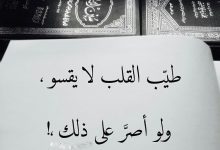 طيّب القلب لا يقسو ،
ولو أصرَّ على ذلك ،!